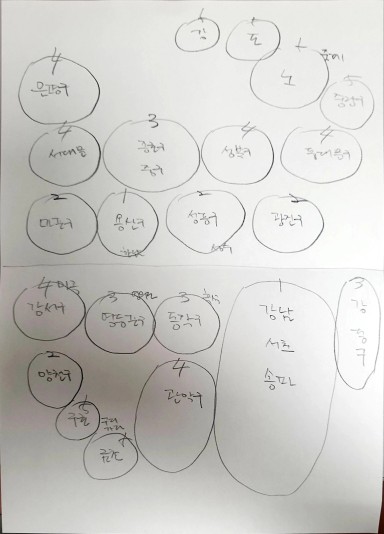 4
은평구
강
도
노
5
4
서대문
3
종로구
중구
4
성북구
4
동대문구
2
마포구
1
용산구
2
성동구
2
광진구
4 마곡
강서구
3
영등포구
3
동작구
1
강남
서초
송파
3
강
동
구
2
양천구
구로
금천
4
관악구